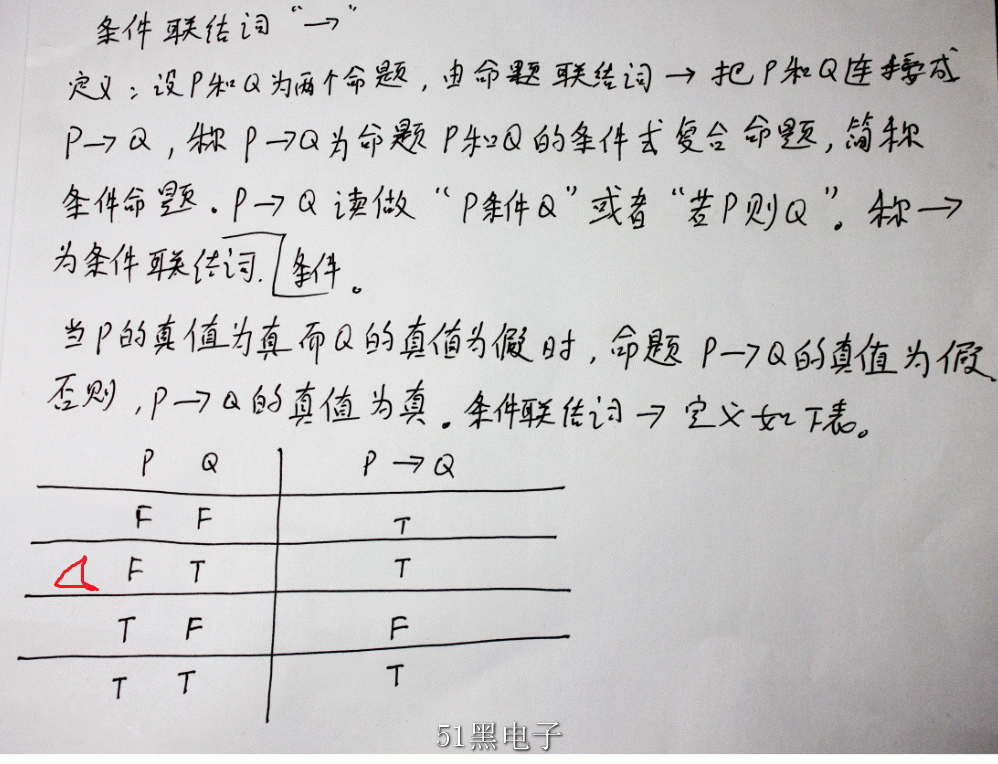 条件联结词“→”
定义：设P和Q为两个命题，由命题联结词→把P和Q连接成
P→Q，称P→Q为命题P和Q的条件式复合命题，简称
条件命题．P→Q读做“P条件Q”或者“若P则Q”。称→
为条件联结词．条件。
当P的真值为真而Q的真值为假时，命题P→Q的真值为假
否则，P→Q的真值为真．条件联结词→定义如下表。
P Q P→Q
F F T
F T T
T F F
T T T
51黑电子